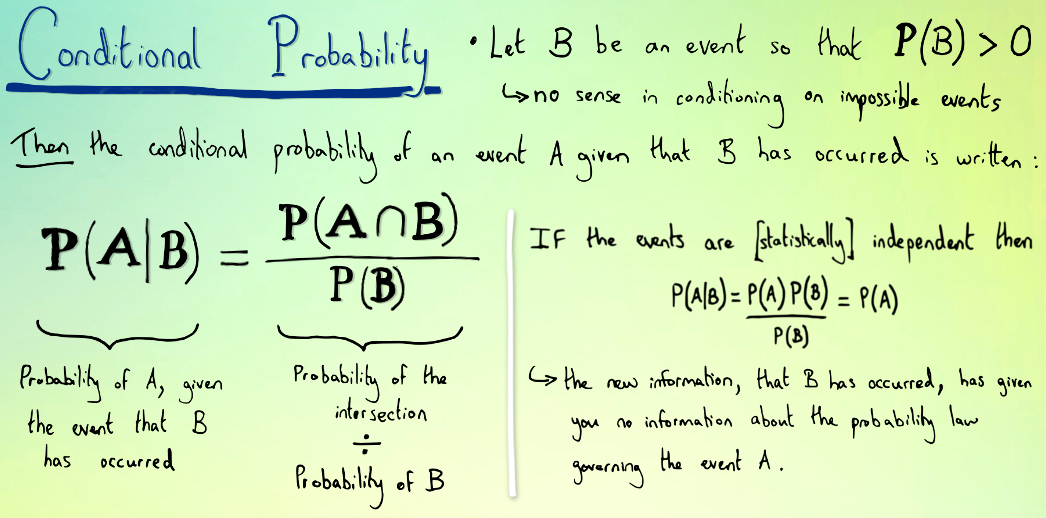 Conditional Probability
• Let B be an event so that P(B) > 0
↳ no sense in conditioning on impossible events
Then the conditional probability of an event A given that B has occurred is written :
P(A|B) = P(A∩B) / P(B)
Probability of A, given
the event that B
has occurred
Probability of the
intersection
÷
Probability of B
IF the events are [statistically] independent then
P(A|B) = P(A) P(B) / P(B) = P(A)
↳ the new information, that B has occurred, has given
you no information about the probability law
governing the event A.